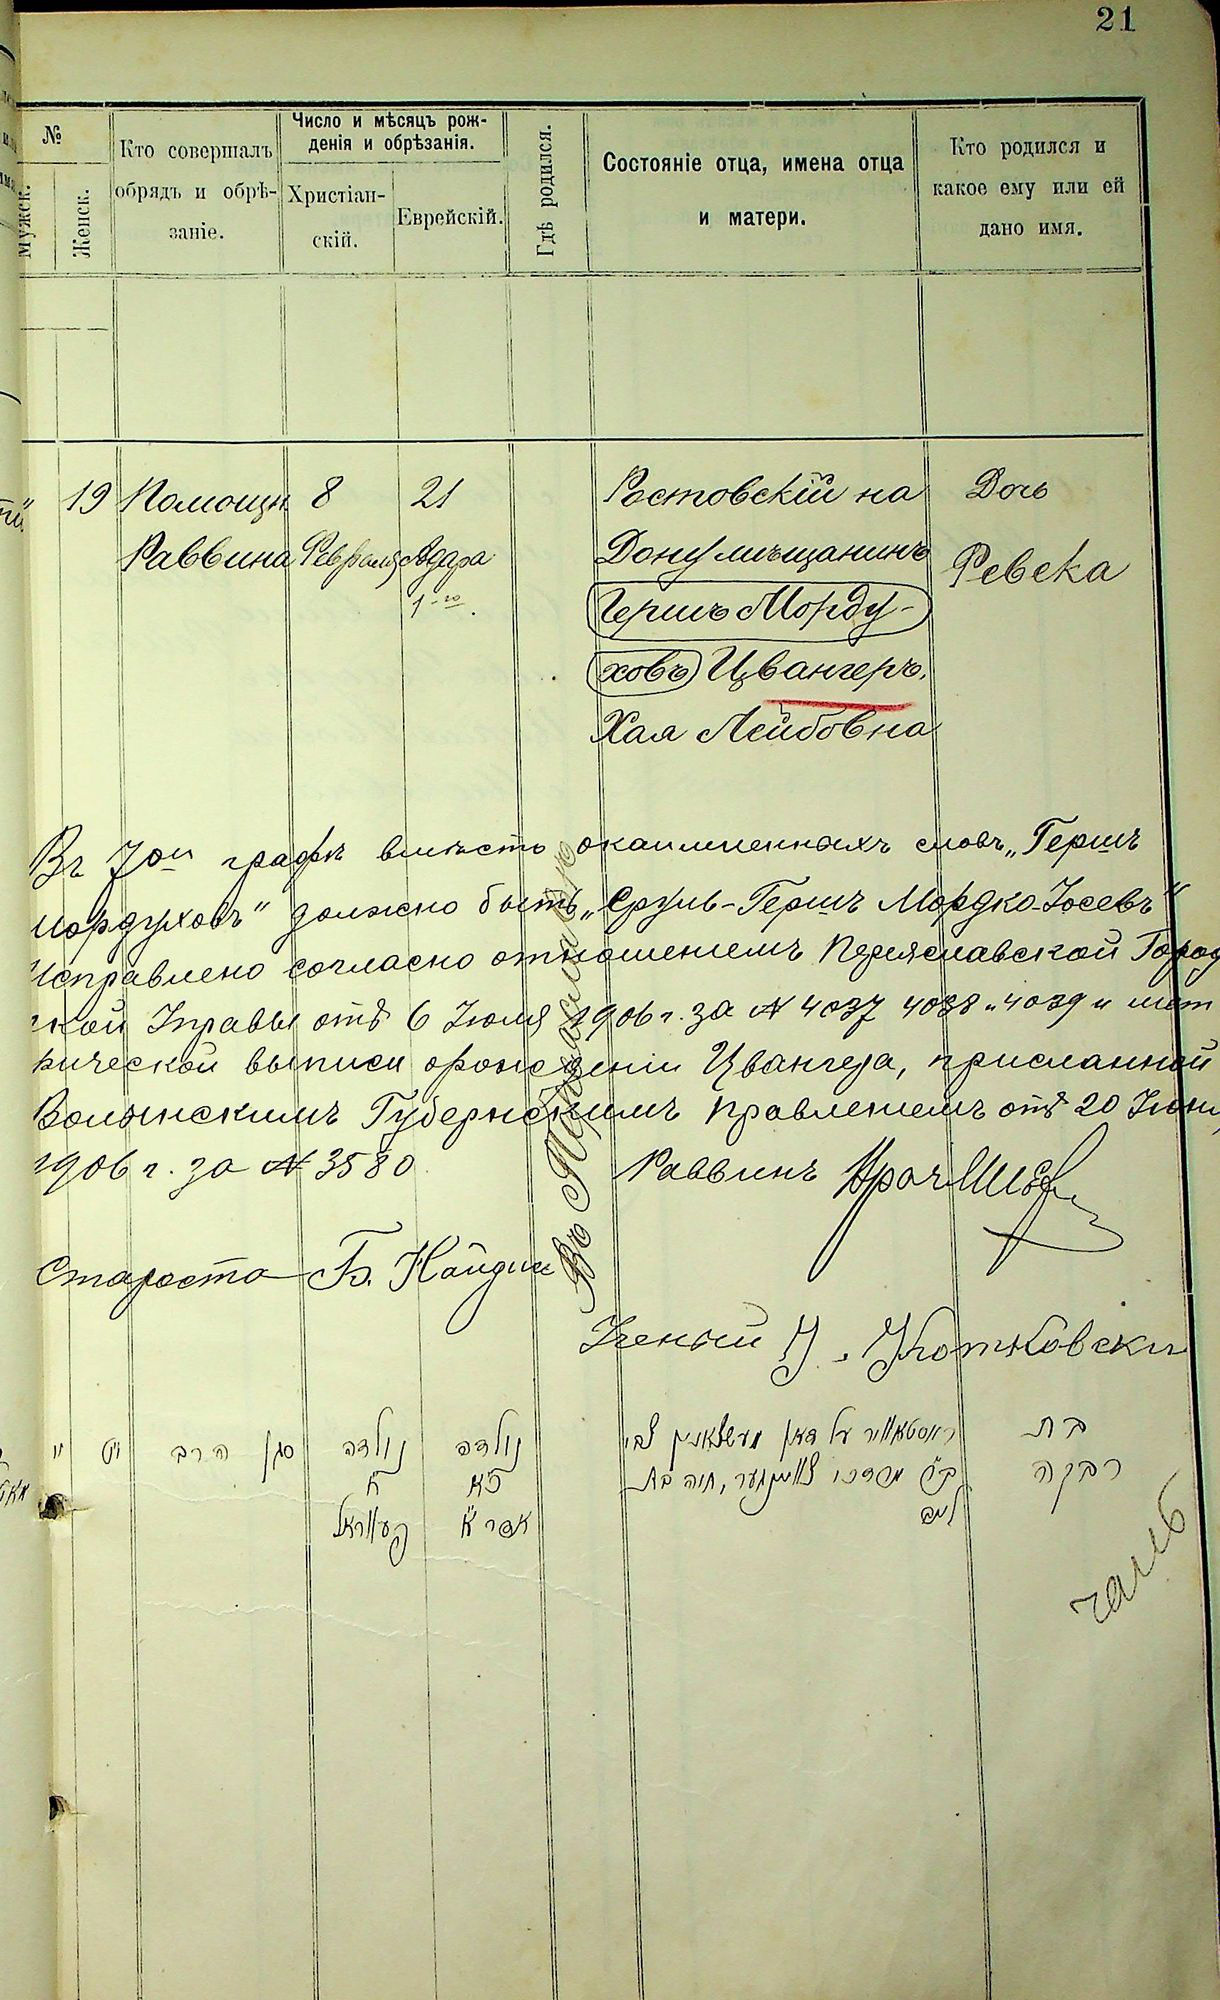 21
№
Мужск.
Женск.
Кто совершалъ
обрядъ и обрѣ-
заніе.
Число и мѣсяцъ рож-
денія и обрѣзанія.
Христіан-
скій.
Еврейскій.
Гдѣ родился.
Состояніе отца, имена отца
и матери.
Кто родился и
какое ему или ей
дано имя.
19
Помощн
Раввина
8
Февраля
21
Адара
1-го
Въ Переяславлѣ
Ростовскій на
Дону мѣщанинъ
Гершъ Морду-
ховъ Цвангеръ.
Хая Лейбовна
Дочь
Ревека
Въ 7ой графѣ вмѣсто окаймленныхъ словъ „Гершъ
Мордуховъ" должно быть „Сруль-Гершъ Мордко-Іосевъ"
Исправлено согласно отношеніемъ Переяславской Город
ской Управы отъ 6 Іюля 1906 г. за № 4037 4038 и 4039 и мет
рической выписи о рожденіи Цвангера, присланной
Волынскимъ Губернскимъ Правленіемъ отъ 20 Іюня
1906 г. за № 3580
Раввинъ
Староста Б. Найдич
Ученый
יט
סגן הרב
נולדה
ח
פעווראל
נולדה
כא
אדר א
לייב
בת
רבקה